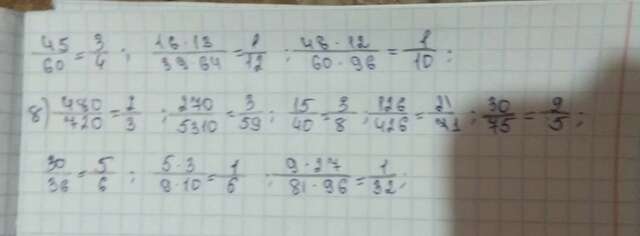 45/60 = 3/4 ; 16·13/39·64 = 1/12 ; 48·12/60·96 = 1/10 ;
8) 480/720 = 2/3 ; 270/5310 = 3/59 ; 15/40 = 3/8 ; 126/426 = 21/71 ; 30/75 = 2/5 ;
30/36 = 5/6 ; 5·3/9·10 = 1/6 ; 9·27/81·96 = 1/32 ;